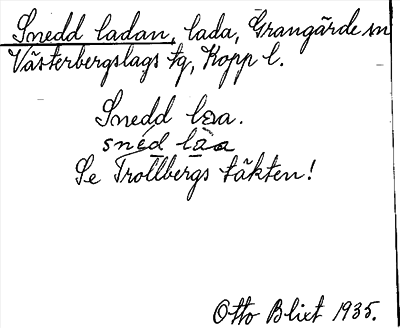 Snedd ladan, lada, Grangärde sn
Västerbergslags tg, Kopp l.
Snedd laa.
snéd lāa
Se Trollbergs täkten!
Otto Blixt 1935.